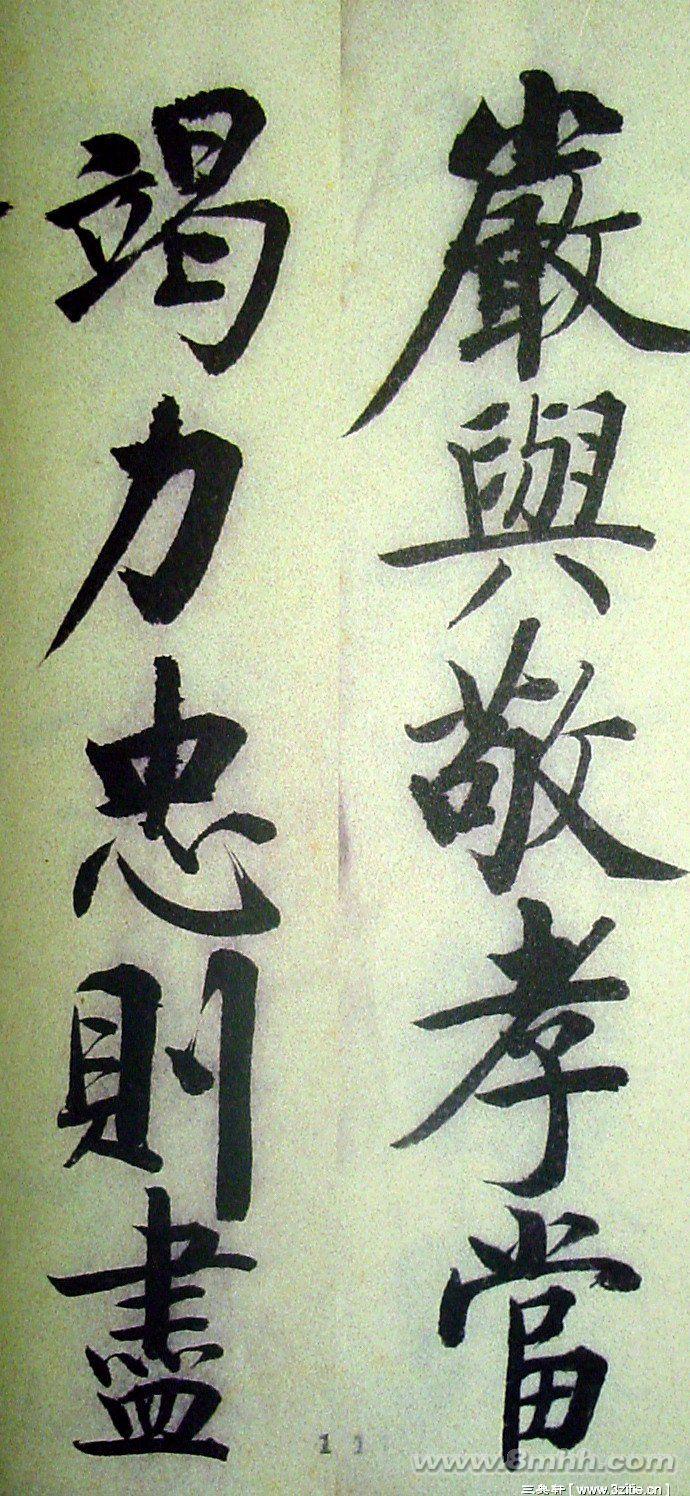 嚴與敬孝當
竭力忠則盡
11
www.8mhh.com
三典轩[www.3zitie.cn]